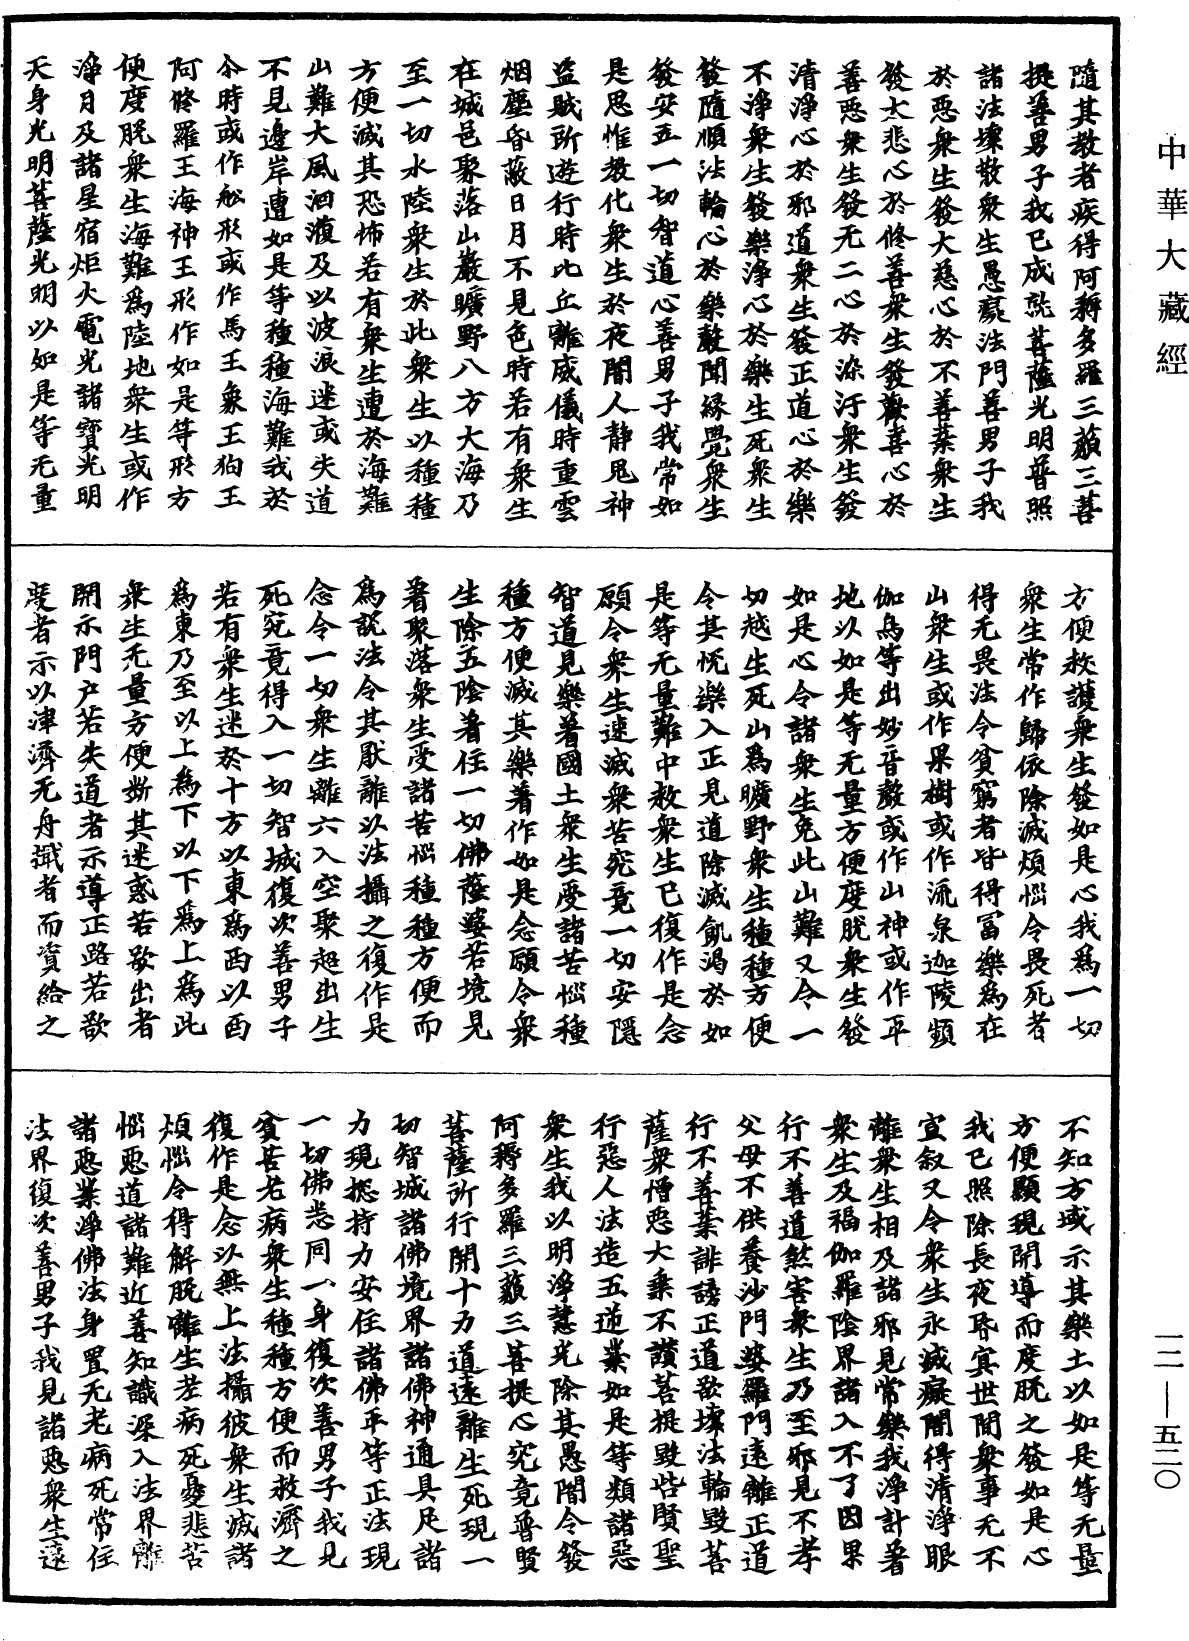 中華大藏經
一二—五二〇
隨其教者疾得阿耨多羅三藐三菩
提善男子我已成就菩薩光明普照
諸法壞散衆生愚癡法門善男子我
於惡衆生發大慈心於不善業衆生
發大悲心於修善衆生發歡喜心於
善惡衆生發无二心於染汙衆生發
清淨心於邪道衆生發正道心於樂
不淨衆生發樂淨心於樂生死衆生
發隨順法輪心於樂聲聞緣覺衆生
發安立一切智道心善男子我常如
是思惟教化衆生於夜闇人静鬼神
盜賊所遊行時比丘離威儀時重雲
烟塵昏蔽日月不見色時若有衆生
在城邑聚落山巖曠野八方大海乃
至一切水陸衆生於此衆生以種種
方便滅其恐怖若有衆生遭於海難
山難大風洄澓及以波浪迷或失道
不見邊岸遭如是等種種海難我於
尒時或作舩形或作馬王象王狗王
阿脩羅王海神王形作如是等形方
便度脫衆生海難爲陸地衆生或作
淨月及諸星宿炬火電光諸寶光明
天身光明菩薩光明以如是等无量
方便救護衆生發如是心我爲一切
衆生常作歸依除滅煩惱令畏死者
得无畏法令貧窮者皆得冨樂爲在
山衆生或作果樹或作流泉迦陵頻
伽鳥等出妙音聲或作山神或作平
地以如是等无量方便度脫衆生發
如是心令諸衆生免此山難又令一
切越生死山爲曠野衆生種種方便
令其悅樂入正見道除滅飢渴於如
是等无量難中救衆生已復作是念
願令衆生速滅衆苦究竟一切安隱
智道見樂著國土衆生受諸苦惱種
種方便滅其樂著作如是念願令衆
生除五陰著住一切佛薩婆若境見
著聚落衆生受諸苦惱種種方便而
爲說法令其厭離以法攝之復作是
念令一切衆生離六入空聚超出生
死究竟得入一切智城復次善男子
若有衆生迷於十方以東爲西以西
爲東乃至以上爲下以下爲上爲此
衆生无量方便断其迷惑若欲出者
開示門戶若失道者示導正路若欲
度者示以津濟无舟檝者而資給之
不知方域示其樂土以如是等无量
方便顯現開導而度脫之發如是心
我已照除長夜昏冥世間衆事无不
宣叙又令衆生永滅癡闇得清淨眼
離衆生相及諸邪見常樂我淨計著
衆生及福伽羅陰界諸入不了因果
行不善道煞害衆生乃至邪見不孝
父母不供養沙門婆羅門遠離正道
行不善業誹謗正道欲壞法輪毀菩
薩衆憎惡大乗不讃菩提毀呰賢聖
行惡人法造五逆業如是等類諸惡
衆生我以明淨慧光除其愚闇令發
阿耨多羅三藐三菩提心究竟普賢
菩薩所行開十力道遠離生死現一
切智城諸佛境界諸佛神通具足諸
力現揔持力安住諸佛平等正法現
一切佛悉同一身復次善男子我見
貧苦老病衆生種種方便而救濟之
復作是念以無上法攝彼衆生滅諸
煩惱令得解脫離生老病死憂悲苦
惱惡道諸難近善知識深入法界離
諸惡業淨佛法身置无老病死常住
法界復次善男子我見諸惡衆生遠